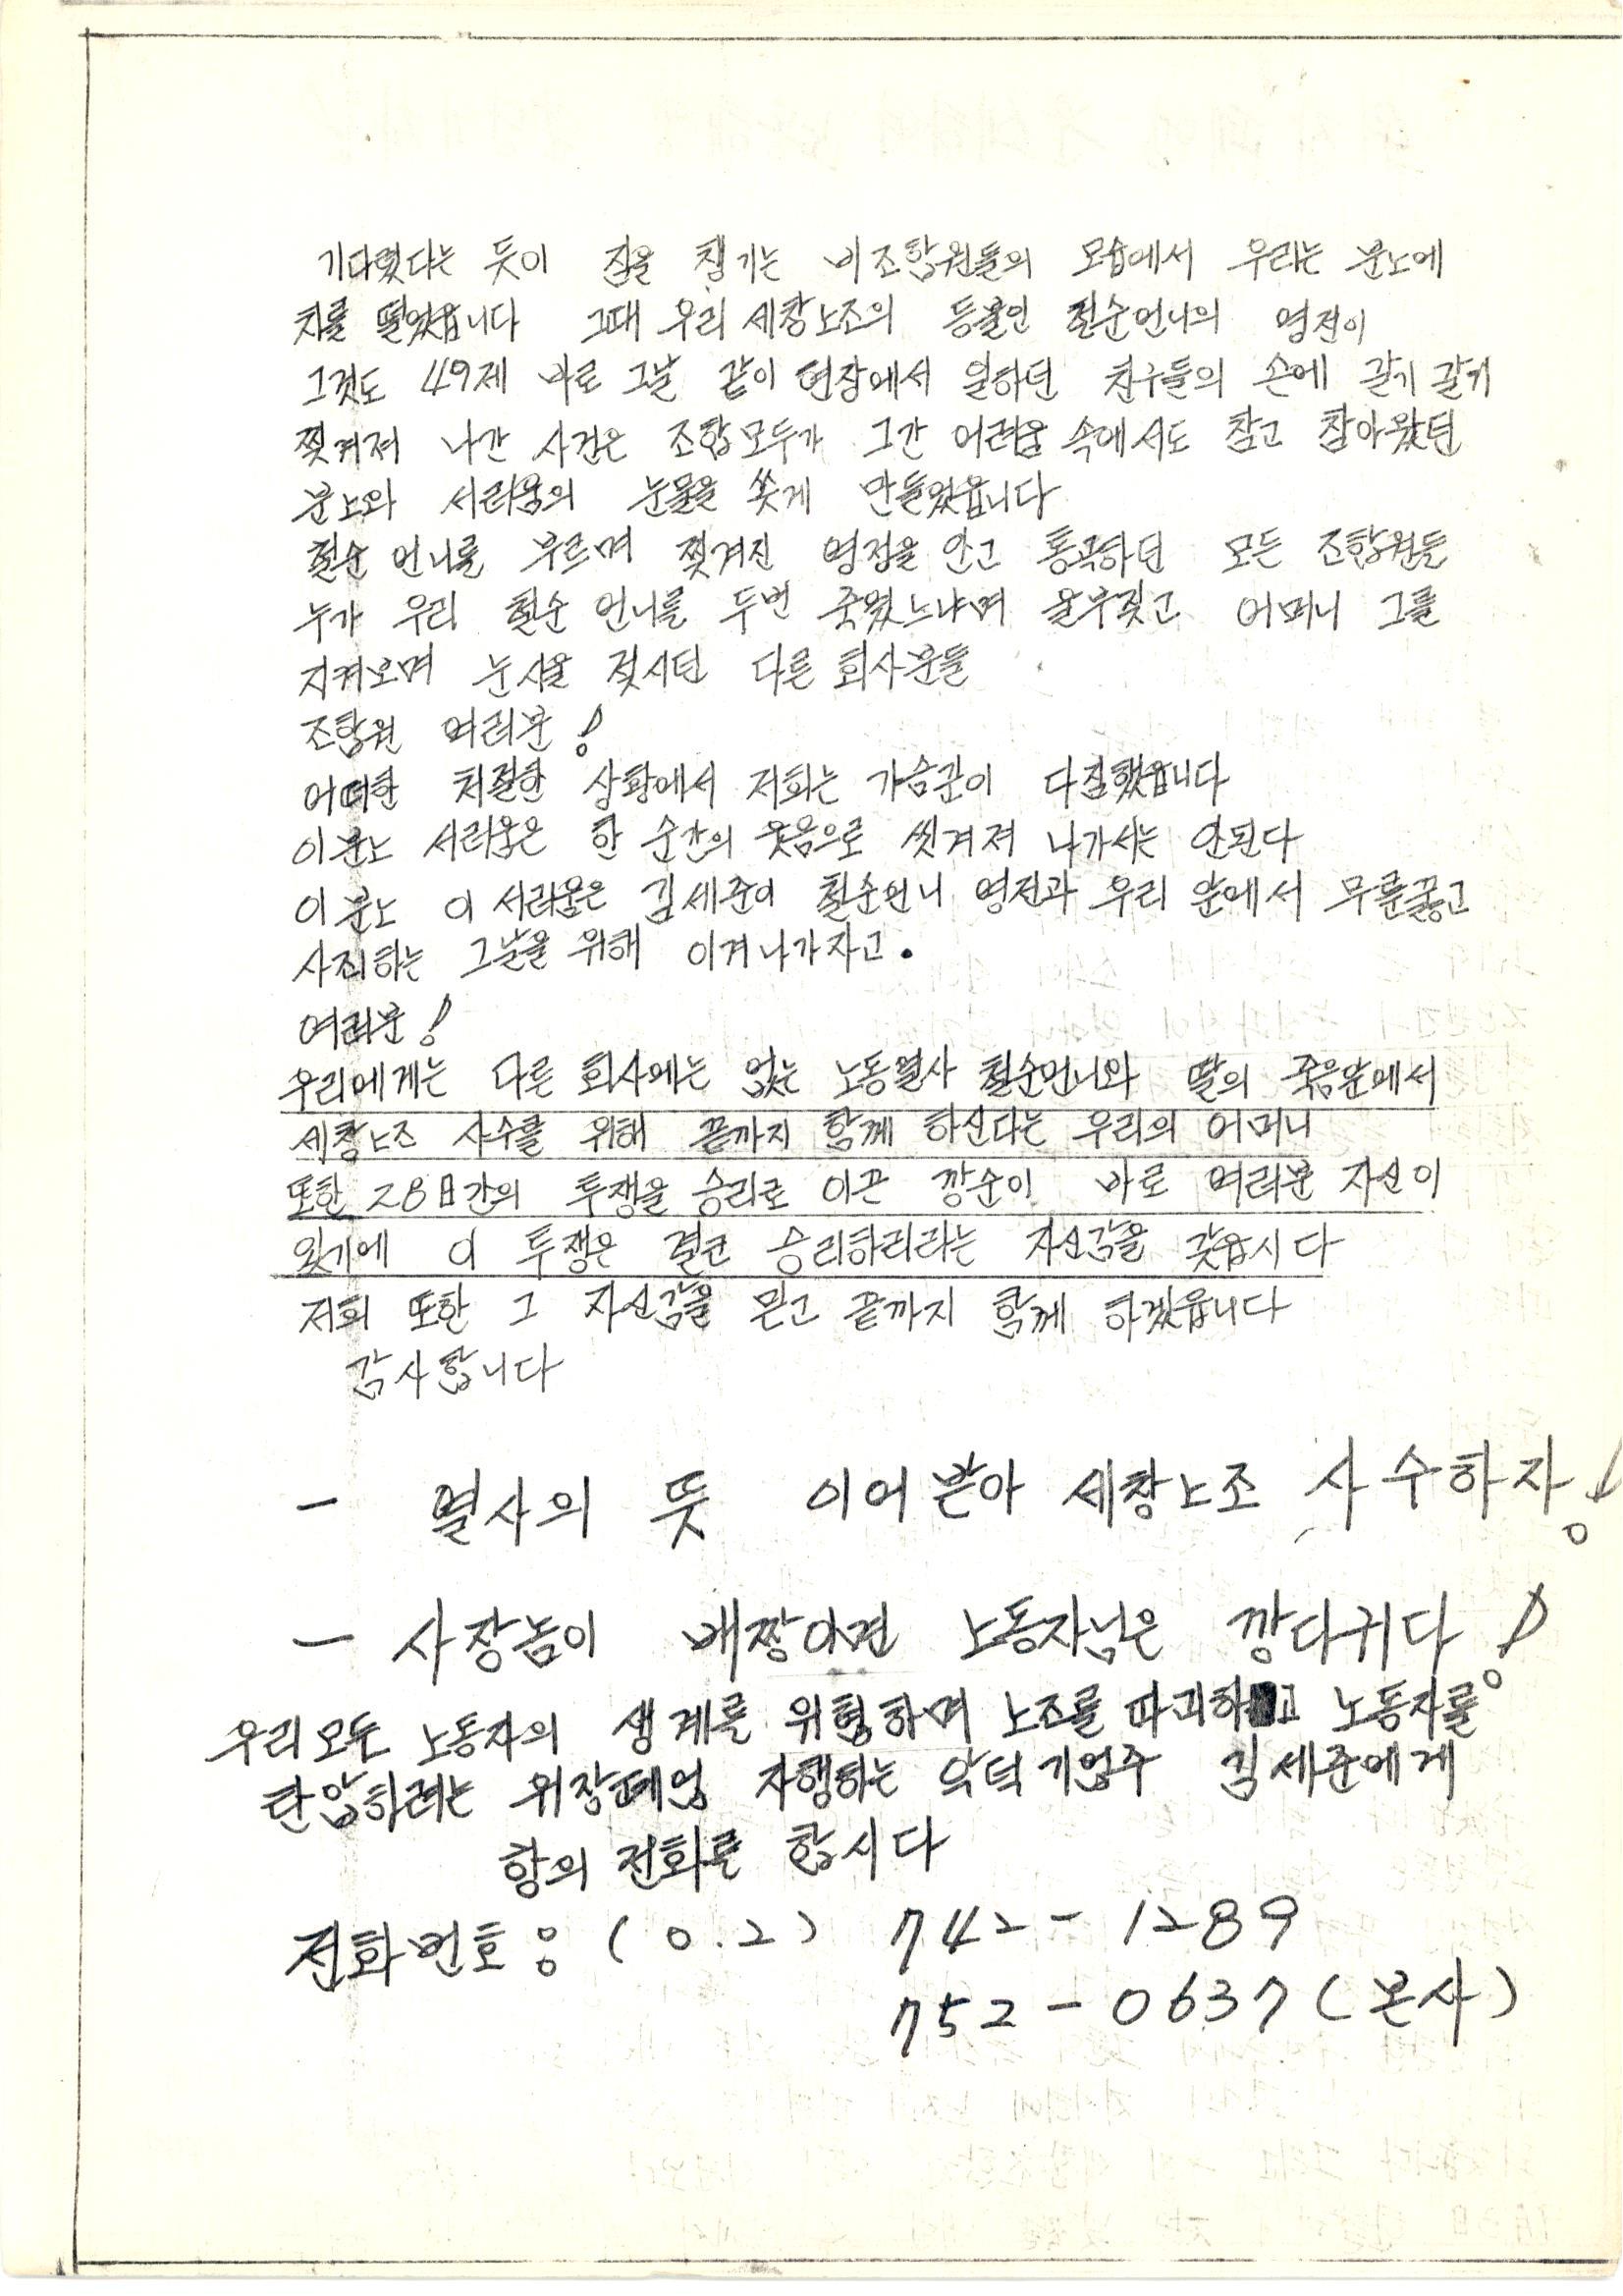 기다렸다는 듯이 짐을 챙기는 비조합원들의 모습에서 우리는 분노에
치를 떨었읍니다 그때 우리 세창노조의 등불인 철순언니의 영전이
그것도 49제 바로 그날 같이 현장에서 일하던 친구들의 손에 갈기 갈기
찢겨져 나간 사건은 조합모두가 그간 어려움 속에서도 참고 참아왔던
분노와 서러움의 눈물을 쏟게 만들었읍니다
철순 언니를 부르며 찢겨진 영정을 안고 통곡하던 모든 조합원들
누가 우리 철순 언니를 두번 죽였느냐며 울부짖고 어머니 그를
지켜보며 눈시울 젖시던 다른 회사분들
조합원 여러분!
어떠한 처절한 상황에서 저희는 가슴깊이 다짐했읍니다
이분노 서러움은 한 순간의 웃음으로 씻겨져 나가서는 안된다
이 분노 이 서러움은 김세준이 철순언니 영전과 우리 앞에서 무릎꿇고
사죄하는 그날을 위해 이겨나가자고.
여러분!
우리에게는 다른 회사에는 없는 노동열사 철순언니와 딸의 죽음앞에서
세창노조 사수를 위해 끝까지 함께 하신다는 우리의 어머니
또한 28日간의 투쟁을 승리로 이끈 깡순이 바로 여러분 자신이
있기에 이 투쟁은 결코 승리하리라는 자신감을 갖읍시다
저희 또한 그 자신감을 믿고 끝까지 함께 하겠읍니다
감사합니다
- 열사의 뜻 이어받아 세창노조 사수하자!
- 사장놈이 배짱이면 노동자님은 깡다귀다!
우리모두 노동자의 생계를 위협하며 노조를 파괴하고 노동자를
탄압하려는 위장폐업 자행하는 악덕기업주 김세준에게
항의 전화를 합시다
전화번호: (0.2) 742-1289
752-0637 (본사)